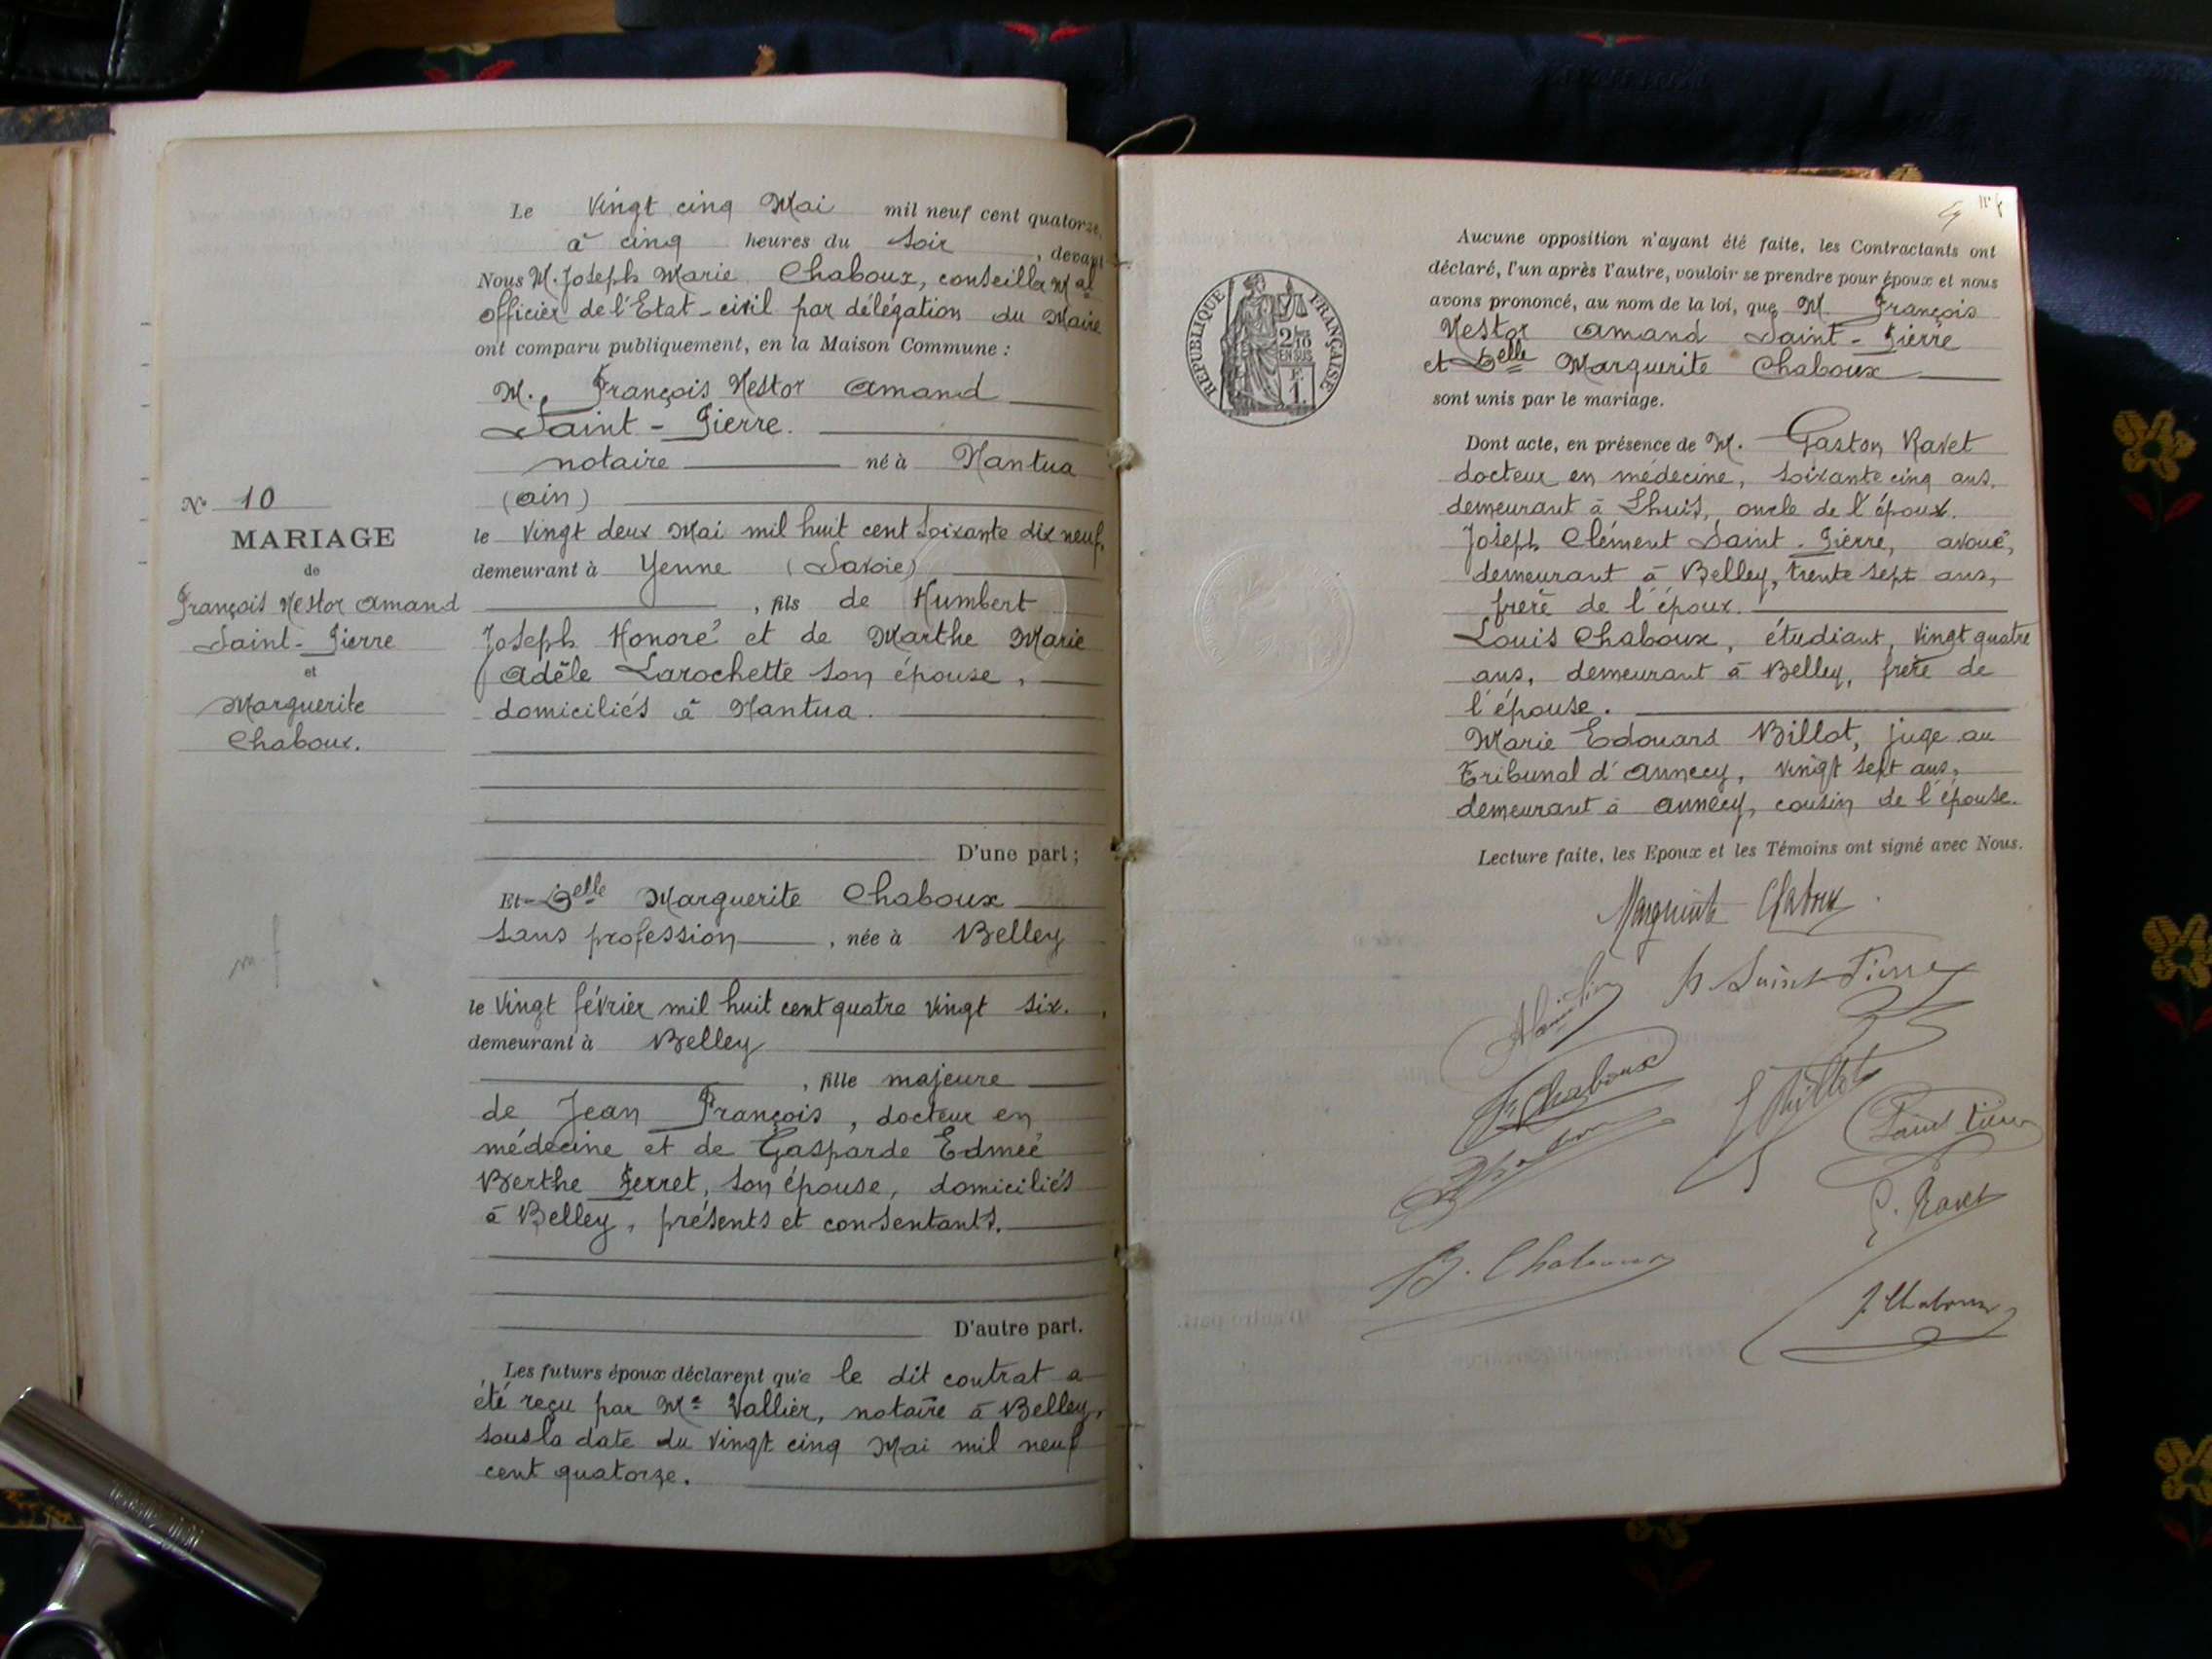 N° 10
MARIAGE
de
François Nestor Amand
Saint-Pierre
et
Marguerite
Chaboux.
Le Vingt cinq Mai mil neuf cent quatorze,
à cinq heures du soir, devant
Nous M. Joseph Marie Chaboux, conseiller Mal
officier de l'Etat-civil par délégation du Maire
ont comparu publiquement, en la Maison Commune :
M. François Nestor Amand
Saint-Pierre.
notaire né à Nantua
(Ain)
le Vingt deux Mai mil huit cent soixante dix neuf,
demeurant à Yenne (Savoie)
, fils de Humbert
Joseph Honoré et de Marthe Marie
Adèle Larochette son épouse,
domiciliés à Nantua.
D'une part ;
Et Delle Marguerite Chaboux
sans profession, née à Belley
le Vingt février mil huit cent quatre vingt six.,
demeurant à Belley
, fille majeure
de Jean François, docteur en
médecine et de Gasparde Edmée
Berthe Perret, son épouse, domiciliés
à Belley, présents et consentants.
D'autre part.
Les futurs époux déclarent que le dit contrat a
été reçu par Me Vallier, notaire à Belley,
sous la date du vingt cinq Mai mil neuf
cent quatorze.
REPUBLIQUE FRANÇAISE
2/10
EN SUS
F.
1.
Aucune opposition n'ayant été faite, les Contractants ont
déclaré, l'un après l'autre, vouloir se prendre pour époux et nous
avons prononcé, au nom de la loi, que M. François
Nestor Amand Saint-Pierre
et Delle Marguerite Chaboux
sont unis par le mariage.
Dont acte, en présence de M. Gaston Ravet
docteur en médecine, soixante cinq ans,
demeurant à Lhuis, oncle de l'époux.
Joseph Clément Saint-Pierre, avoué,
demeurant à Belley, trente sept ans,
frère de l'époux.
Louis Chaboux, étudiant, vingt quatre
ans, demeurant à Belley, frère de
l'épouse.
Marie Edouard Billot, juge au
Tribunal d'Annecy, vingt sept ans,
demeurant à Annecy, cousin de l'épouse.
Lecture faite, les Epoux et les Témoins ont signé avec Nous.
Marguerite Chaboux
Saint-Pierre
Chaboux
Billot
Saint Pierre
G. Ravet
B. Chaboux
J. Chaboux